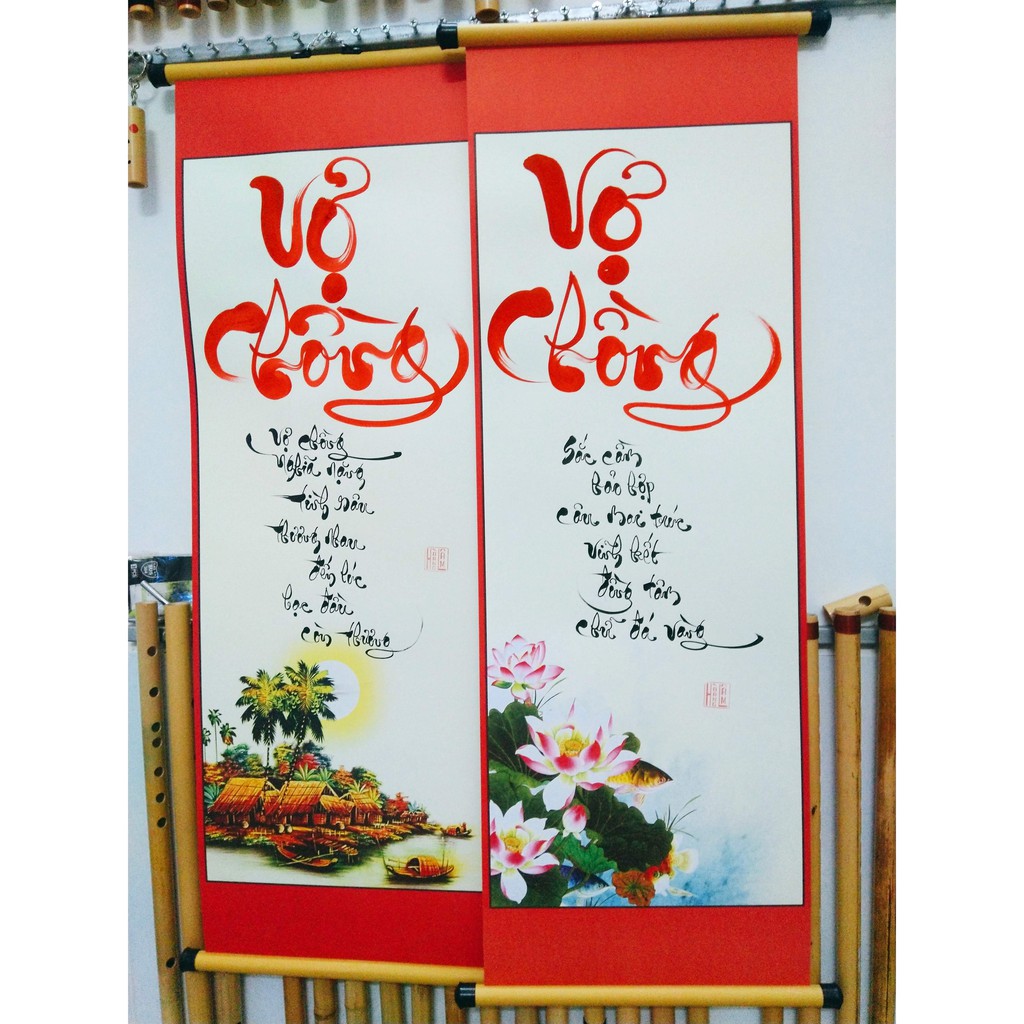 Vợ
Chồng
Vợ chồng
nghĩa nặng
tình sâu
Thương nhau
đến lúc
bạc đầu
còn thương
Vợ
Chồng
Sắc cầm
hảo hợp
câu mai trúc
Vĩnh kết
đồng tâm
chữ đá vàng